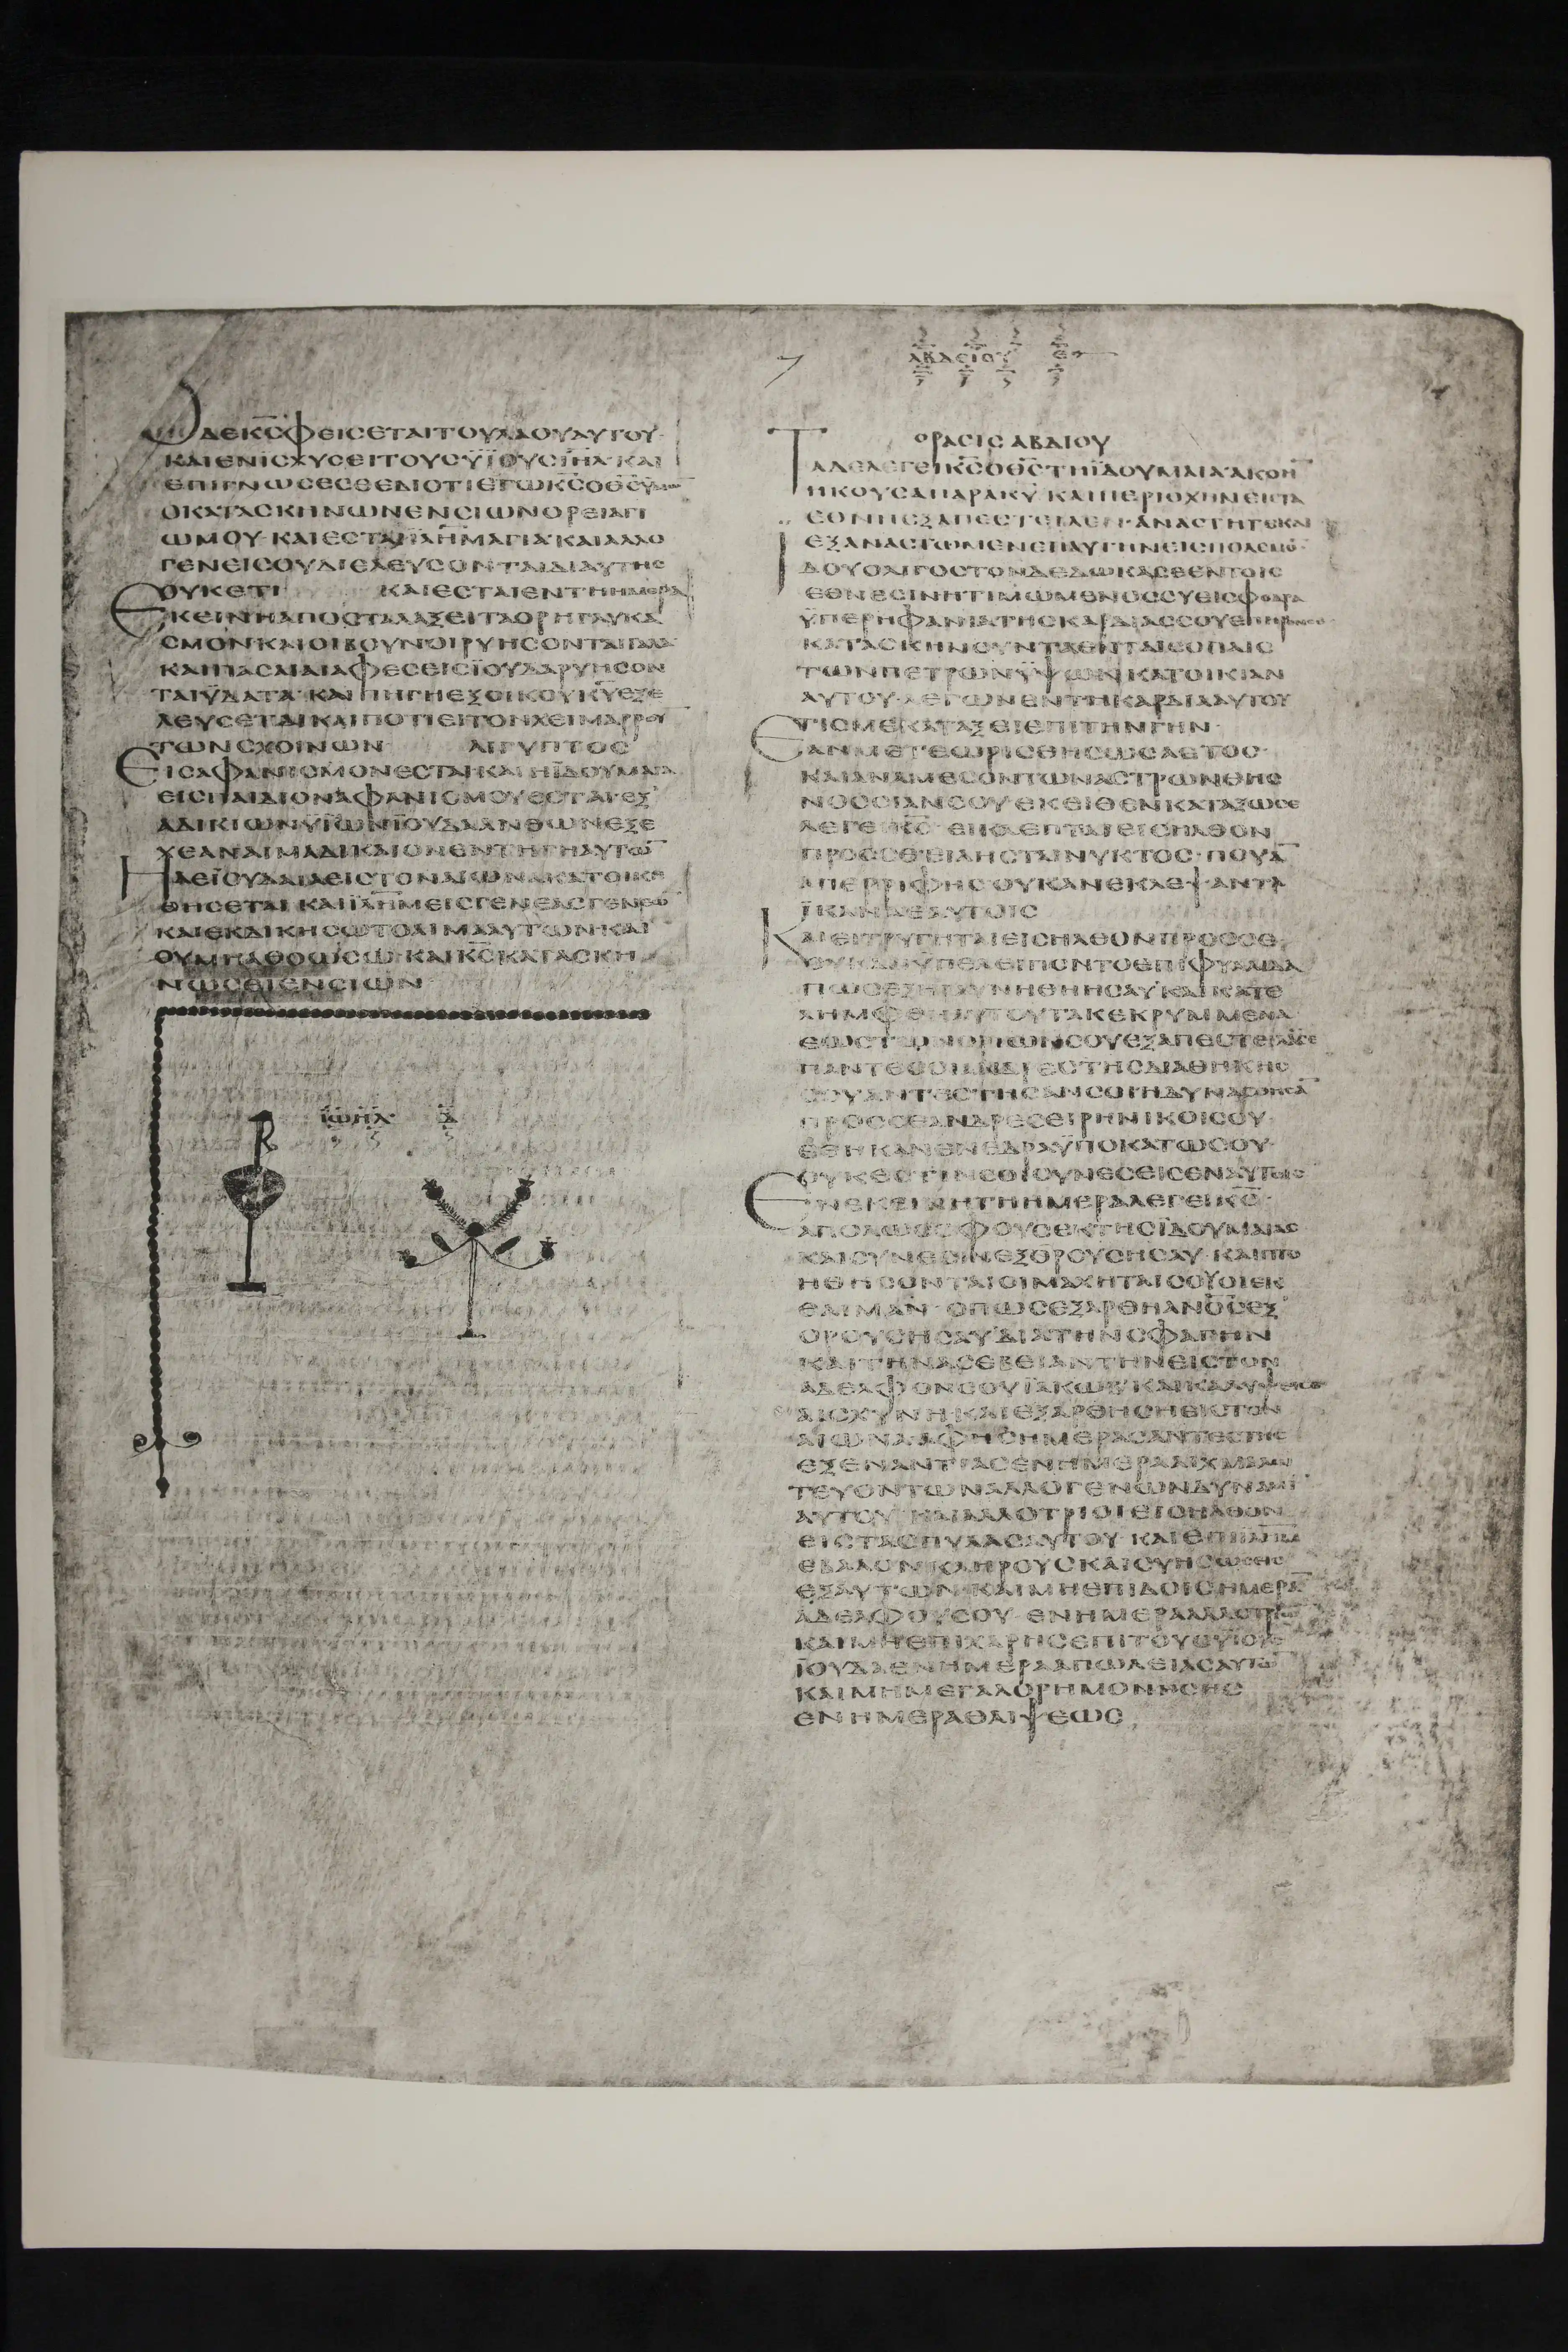 ΟΔΕΚ̅Σ̅ΦΕΙΣΕΤΑΙΤΟΥΛΑΟΥΑΥΤΟΥ·
ΚΑΙΕΝΙΣΧΥΣΕΙΤΟΥΣΫΙΟΥΣΙ̅Η̅Λ̅·ΚΑΙ
ΕΠΙΓΝΩΣΕΣΘΕΔΙΟΤΙΕΓΩΚ̅Σ̅ΟΘ̅Σ̅ΫΜΩ̅
ΟΚΑΤΑΣΚΗΝΩΝΕΝΣΙΩΝΟΡΕΙΑΓΙ
ΩΜΟΥ·ΚΑΙΕΣΤΑΙΙ̅Λ̅Η̅Μ̅ΑΓΙΑ·ΚΑΙΑΛΛΟ
ΓΕΝΕΙΣΟΥΔΙΕΛΕΥΣΟΝΤΑΙΔΙΑΥΤΗΣ
ΟΥΚΕΤΙ ΚΑΙΕΣΤΑΙΕΝΤΗΗΜΕΡΑ
ΕΚΕΙΝΗΑΠΟΣΤΑΛΑΞΕΙΤΑΟΡΗΓΛΥΚΑ
ΣΜΟΝΚΑΙΟΙΒΟΥΝΟΙΡΥΗΣΟΝΤΑΙΓΑΛΑ
ΚΑΙΠΑΣΑΙΑΙΑΦΕΣΕΙΣΪΟΥΔΑΡΥΗΣΟΝ
ΤΑΙΫΔΑΤΑ·ΚΑΙΠΗΓΗΕΞΟΙΚΟΥΚ̅Υ̅ΕΞΕ
ΛΕΥΣΕΤΑΙΚΑΙΠΟΤΙΕΙΤΟΝΧΕΙΜΑΡΡΟΥ̅
ΤΩΝΣΧΟΙΝΩΝ ΑΙΓΥΠΤΟΣ
ΕΙΣΑΦΑΝΙΣΜΟΝΕΣΤΑΙ·ΚΑΙΗΪΔΟΥΜΑΙΑ
ΕΙΣΠΑΙΔΙΟΝΑΦΑΝΙΣΜΟΥΕΣΤΑΙ·ΕΞ
ΑΔΙΚΙΩΝΫΪΩΝΪΟΥΔΑΑΝΘΩΝΕΞΕ
ΧΕΑΝΑΙΜΑΔΙΚΑΙΟΝΕΝΤΗΓΗΑΥΤΩ̅
ΗΔΕΪΟΥΔΑΙΑΕΙΣΤΟΝΑΙΩΝΑΚΑΤΟΙΚΗ
ΘΗΣΕΤΑΙ·ΚΑΙΙ̅Λ̅Η̅Μ̅ΕΙΣΓΕΝΕΑΣΓΕΝΕΩ̅
ΚΑΙΕΚΔΙΚΗΣΩΤΟΑΙΜΑΑΥΤΩΝΚΑΙ
ΟΥΜΗΑΘΟΩΣΩ·ΚΑΙΚ̅Σ̅ΚΑΤΑΣΚΗ
ΝΩΣΕΙΕΝΣΙΩΝ
ΪΩΗΛ Δ
ΑΒΔΕΙΟΥ Ε
ΟΡΑΣΙΣΑΒΔΙΟΥ
ΤΑΔΕΛΕΓΕΙΚ̅Σ̅ΟΘ̅Σ̅ΤΗΪΔΟΥΜΑΙΑ·ΑΚΟΗ̅
ΗΚΟΥΣΑΠΑΡΑΚ̅Υ̅·ΚΑΙΠΕΡΙΟΧΗΝΕΙΣΤΑ
ΕΘΝΗΕΞΑΠΕΣΤΕΙΛΕΝ·ΑΝΑΣΤΗΤΕΚΑΙ
ΕΞΑΝΑΣΤΩΜΕΝΕΠΑΥΤΗΝΕΙΣΠΟΛΕΜΟ̅·
ΙΔΟΥΟΛΙΓΟΣΤΟΝΔΕΔΩΚΑΣΕΕΝΤΟΙΣ
ΕΘΝΕΣΙΝΗΤΙΜΩΜΕΝΟΣΣΥΕΙΣΦΟΔΡΑ
ΫΠΕΡΗΦΑΝΙΑΤΗΣΚΑΡΔΙΑΣΣΟΥΕΠΗΡΕΝΣΕ
ΚΑΤΑΣΚΗΝΟΥΝΤΑΕΝΤΑΙΣΟΠΑΙΣ
ΤΩΝΠΕΤΡΩΝΫΨΩΝΚΑΤΟΙΚΙΑΝ
ΑΥΤΟΥ·ΛΕΓΩΝΕΝΤΗΚΑΡΔΙΑΑΥΤΟΥ
ΤΙΣΜΕΚΑΤΑΞΕΙΕΠΙΤΗΝΓΗΝ·
ΕΑΝΜΕΤΕΩΡΙΣΘΗΣΩΣΑΕΤΟΣ·
ΚΑΙΑΝΑΜΕΣΟΝΤΩΝΑΣΤΡΩΝΘΗΣ
ΝΟΣΣΙΑΝΣΟΥΕΚΕΙΘΕΝΚΑΤΑΞΩΣΕ
ΛΕΓΕΙΚ̅Σ̅·ΕΙΚΛΕΠΤΑΙΕΙΣΗΛΘΟΝ
ΠΡΟΣΣΕΗΛΗΣΤΑΙΝΥΚΤΟΣ·ΠΟΥΑ̅
ΑΠΕΡΡΙΦΗΣΟΥΚΑΝΕΚΛΕΨΑΝΤΑ
ΪΚΑΝΑΕΑΥΤΟΙΣ
ΚΑΙΕΙΤΡΥΓΗΤΑΙΕΙΣΗΛΘΟΝΠΡΟΣΣΕ
ΟΥΚΑΝΫΠΕΛΕΙΠΟΝΤΟΕΠΙΦΥΛΛΙΔΑ
ΠΩΣΕΞΗΡΑΥΝΗΘΗΗΣΑΥΚΑΙΚΑΤΕ
ΛΗΜΦΘΗΑΥΤΟΥΤΑΚΕΚΡΥΜΜΕΝΑ
ΕΩΣΤΩΝΟΡΙΩΝΣΟΥΕΞΑΠΕΣΤΕΙΛΑΝΣΕ
ΠΑΝΤΕΣΟΙΑΝΔΡΕΣΤΗΣΔΙΑΘΗΚΗΣ
ΣΟΥΑΝΤΕΣΤΗΣΑΝΣΟΙΗΔΥΝΑΣΘΗΣΑ̅
ΠΡΟΣΣΕΑΝΔΡΕΣΕΙΡΗΝΙΚΟΙΣΟΥ·
ΕΘΗΚΑΝΕΝΕΔΡΑΫΠΟΚΑΤΩΣΟΥ·
ΟΥΚΕΣΤΙΝΣΟΙΣΥΝΕΣΕΙΣΕΝΑΥΤΟΙΣ
ΕΝΕΚΕΙΝΗΤΗΗΜΕΡΑΛΕΓΕΙΚ̅Σ̅·
ΑΠΟΛΩΣΟΦΟΥΣΕΚΤΗΣΪΔΟΥΜΑΙΑΣ
ΚΑΙΣΥΝΕΣΙΝΕΞΟΡΟΥΣΗΣΑΥ·ΚΑΙΠΤΟ
ΗΘΗΣΟΝΤΑΙΟΙΜΑΧΗΤΑΙΣΟΥΟΙΕΚ
ΘΑΙΜΑΝ·ΟΠΩΣΕΞΑΡΘΗΑΝΟ̅Σ̅ΕΞ
ΟΡΟΥΣΗΣΑΥΔΙΑΤΗΝΣΦΑΓΗΝ
ΚΑΙΤΗΝΑΣΕΒΕΙΑΝΤΗΝΕΙΣΤΟΝ
ΑΔΕΛΦΟΝΣΟΥΪΑΚΩΒ·ΚΑΙΚΑΛΥΨΕΙΣΕ
ΑΙΣΧΥΝΗ·ΚΑΙΕΞΑΡΘΗΣΗΕΙΣΤΟΝ
ΑΙΩΝΑ·ΑΦΗΣΗΜΕΡΑΣΑΝΤΕΣΤΗΣ
ΕΞΕΝΑΝΤΙΑΣΕΝΗΜΕΡΑΑΙΧΜΑΛΩ
ΤΕΥΟΝΤΩΝΑΛΛΟΓΕΝΩΝΔΥΝΑΜΙ̅
ΑΥΤΟΥ·ΚΑΙΑΛΛΟΤΡΙΟΙΕΙΣΗΛΘΟΝ
ΕΙΣΤΑΣΠΥΛΑΣΑΥΤΟΥ·ΚΑΙΕΠΙΙ̅Λ̅Η̅Μ̅
ΕΒΑΛΟΝΚΛΗΡΟΥΣΚΑΙΣΥΗΣΩΣΕΙΣ
ΕΞΑΥΤΩΝ·ΚΑΙΜΗΕΠΙΔΟΙΣΗΜΕΡΑ̅
ΑΔΕΛΦΟΥΣΟΥ·ΕΝΗΜΕΡΑΑΛΛΟΤΡΙΩ̅
ΚΑΙΜΗΕΠΙΧΑΡΗΣΕΠΙΤΟΥΣΫΙΟΥΣ
ΪΟΥΔΑΕΝΗΜΕΡΑΑΠΩΛΕΙΑΣΑΥΤΩ̅
ΚΑΙΜΗΜΕΓΑΛΟΡΗΜΟΝΗΣΗΣ
ΕΝΗΜΕΡΑΘΛΙΨΕΩΣ